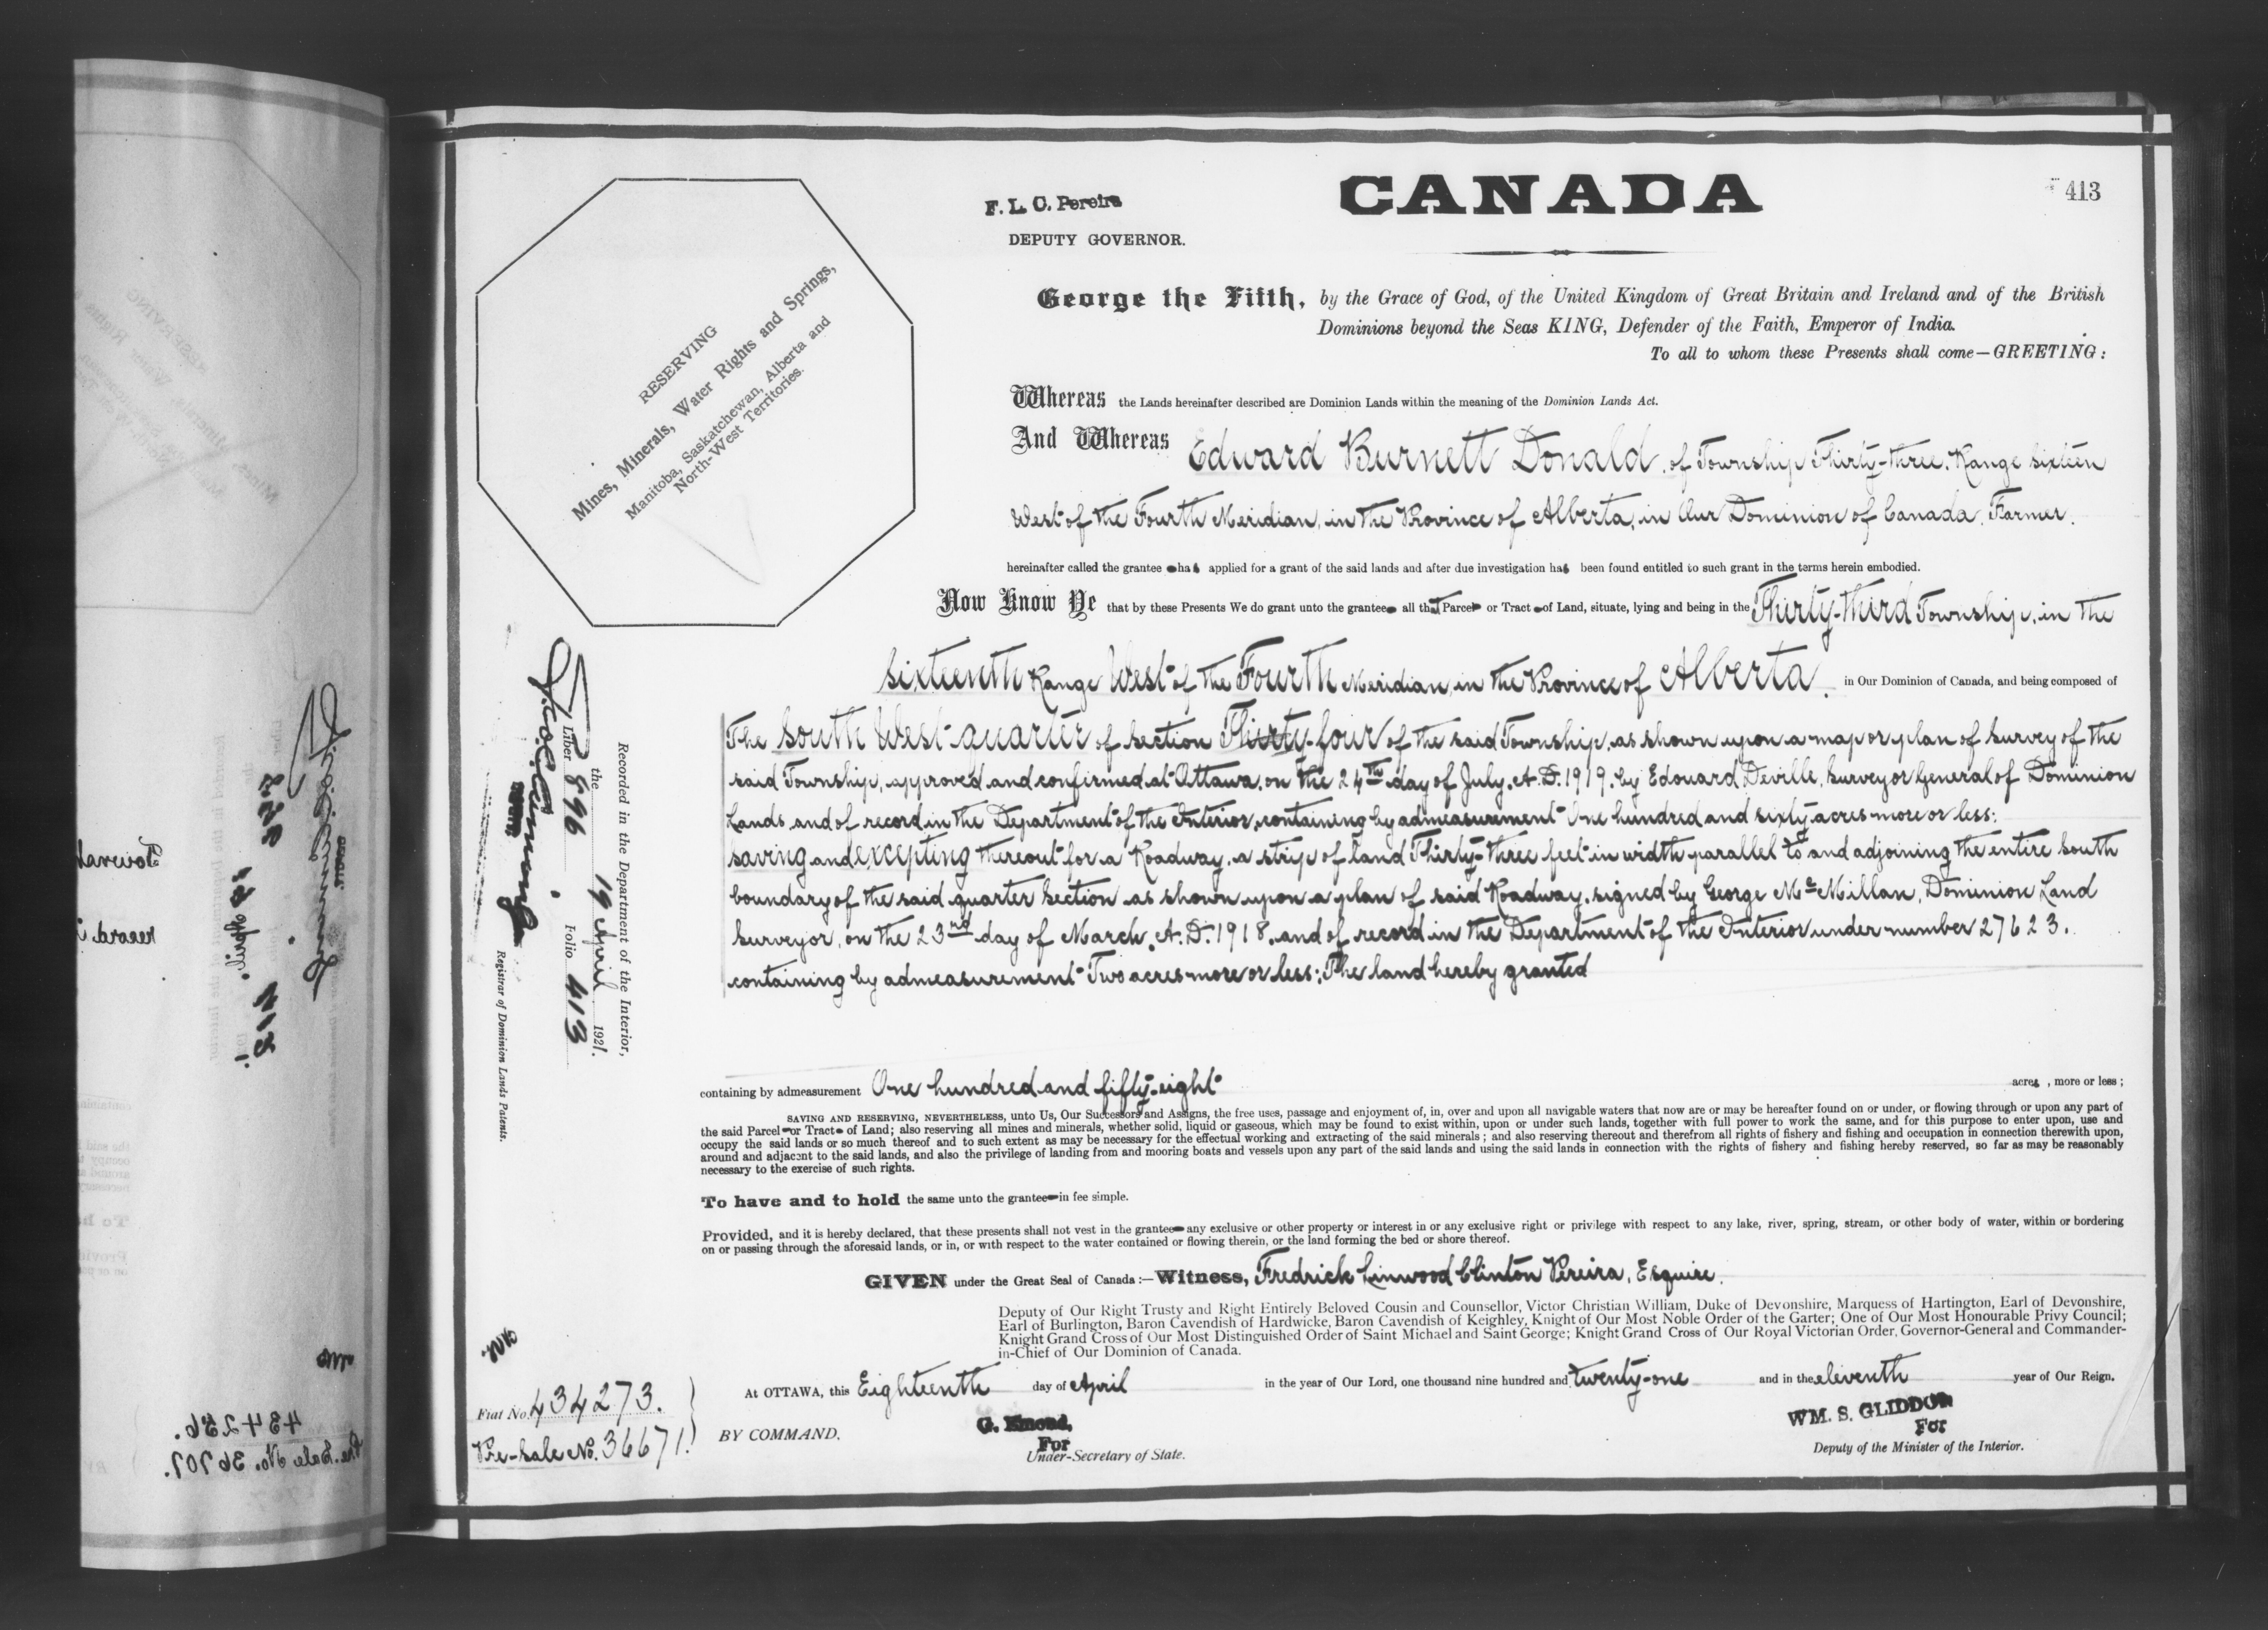 CANADA
413
F. L. C. Pereira
DEPUTY GOVERNOR.
RESERVING
Mines, Minerals, Water Rights and Springs,
Manitoba, Saskatchewan, Alberta and
North-West Territories.
George the Fifth, by the Grace of God, of the United Kingdom of Great Britain and Ireland and of the British
Dominions beyond the Seas KING, Defender of the Faith, Emperor of India.
To all to whom these Presents shall come—GREETING:
Whereas the Lands hereinafter described are Dominion Lands within the meaning of the Dominion Lands Act.
And Whereas Edward Burnett Donald, of Township Thirty-three, Range Sixteen
West of the Fourth Meridian, in the Province of Alberta, in Our Dominion of Canada, Farmer.
hereinafter called the grantee has applied for a grant of the said lands and after due investigation has been found entitled to such grant in the terms herein embodied.
Now Know Ye that by these Presents We do grant unto the grantee all that Parcel or Tract of Land, situate, lying and being in the Thirty-third Township, in the
Sixteenth Range West of the Fourth Meridian, in the Province of Alberta, in Our Dominion of Canada, and being composed of
The South West quarter of Section Thirty-four of the said Township, as shown upon a map or plan of Survey of the
said Township, approved and confirmed at Ottawa, on the 24th day of July, A.D. 1919, by Edouard Deville, Surveyor General of Dominion
Lands, and of record in the Department of the Interior, containing by admeasurement One hundred and sixty acres more or less:
saving and excepting thereout for a Roadway, a strip of land Thirty-three feet in width parallel to and adjoining the entire South
boundary of the said quarter Section as shown upon a plan of said Roadway, signed by George McMillan, Dominion Land
Surveyor, on the 23rd day of March, A.D. 1918, and of record in the Department of the Interior under number 27623.
containing by admeasurement Two acres more or less; The land hereby granted
containing by admeasurement One hundred and fifty-eight acres, more or less;
SAVING AND RESERVING, NEVERTHELESS, unto Us, Our Successors and Assigns, the free uses, passage and enjoyment of, in, over and upon all navigable waters that now are or may be hereafter found on or under, or flowing through or upon any part of
the said Parcel or Tract of Land; also reserving all mines and minerals, whether solid, liquid or gaseous, which may be found to exist within, upon or under such lands, together with full power to work the same, and for this purpose to enter upon, use and
occupy the said lands or so much thereof and to such extent as may be necessary for the effectual working and extracting of the said minerals; and also reserving thereout and therefrom all rights of fishery and fishing and occupation in connection therewith upon,
around and adjacent to the said lands, and also the privilege of landing from and mooring boats and vessels upon any part of the said lands and using the said lands in connection with the rights of fishery and fishing hereby reserved, so far as may be reasonably
necessary to the exercise of such rights.
To have and to hold the same unto the grantee in fee simple.
Provided, and it is hereby declared, that these presents shall not vest in the grantee any exclusive or other property or interest in or any exclusive right or privilege with respect to any lake, river, spring, stream, or other body of water, within or bordering
on or passing through the aforesaid lands, or in, or with respect to the water contained or flowing therein, or the land forming the bed or shore thereof.
GIVEN under the Great Seal of Canada:—Witness, Fredrick Linwood Clinton Pereira, Esquire.
Deputy of Our Right Trusty and Right Entirely Beloved Cousin and Counsellor, Victor Christian William, Duke of Devonshire, Marquess of Hartington, Earl of Devonshire,
Earl of Burlington, Baron Cavendish of Hardwicke, Baron Cavendish of Keighley, Knight of Our Most Noble Order of the Garter; One of Our Most Honourable Privy Council;
Knight Grand Cross of Our Most Distinguished Order of Saint Michael and Saint George; Knight Grand Cross of Our Royal Victorian Order, Governor-General and Commander-
in-Chief of Our Dominion of Canada.
At OTTAWA, this Eighteenth day of April in the year of Our Lord, one thousand nine hundred and twenty-one and in the eleventh year of Our Reign.
BY COMMAND,
For
Under-Secretary of State.
WM. S. GLIDDON
For
Deputy of the Minister of the Interior.
Recorded in the Department of the Interior,
the 19 April 1921.
Liber 896 Folio 413
Registrar of Dominion Lands Patents.
Fiat No. 434273.
Pre-Sale No. 36671.
434256.
Pre-Sale No. 36707.